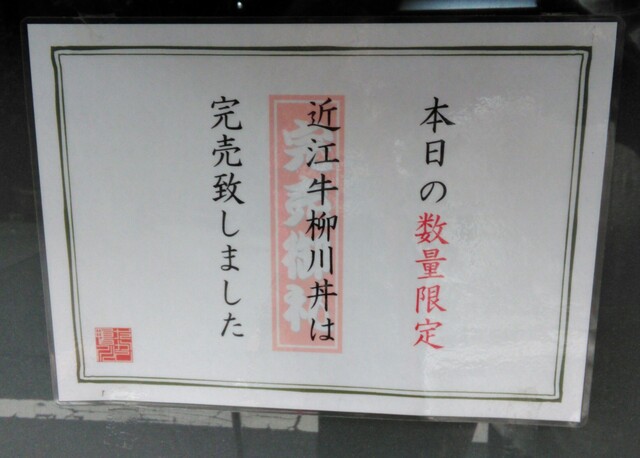 本日の数量限定
近江牛柳川丼は
完売致しました
完売御礼